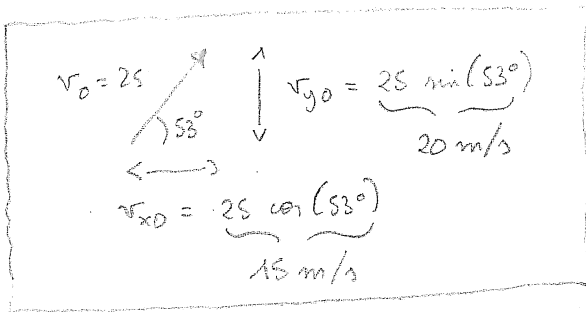 v₀ = 25
53°
v_y0 = 25 sin(53°)
20 m/s
v_x0 = 25 cos(53°)
15 m/s